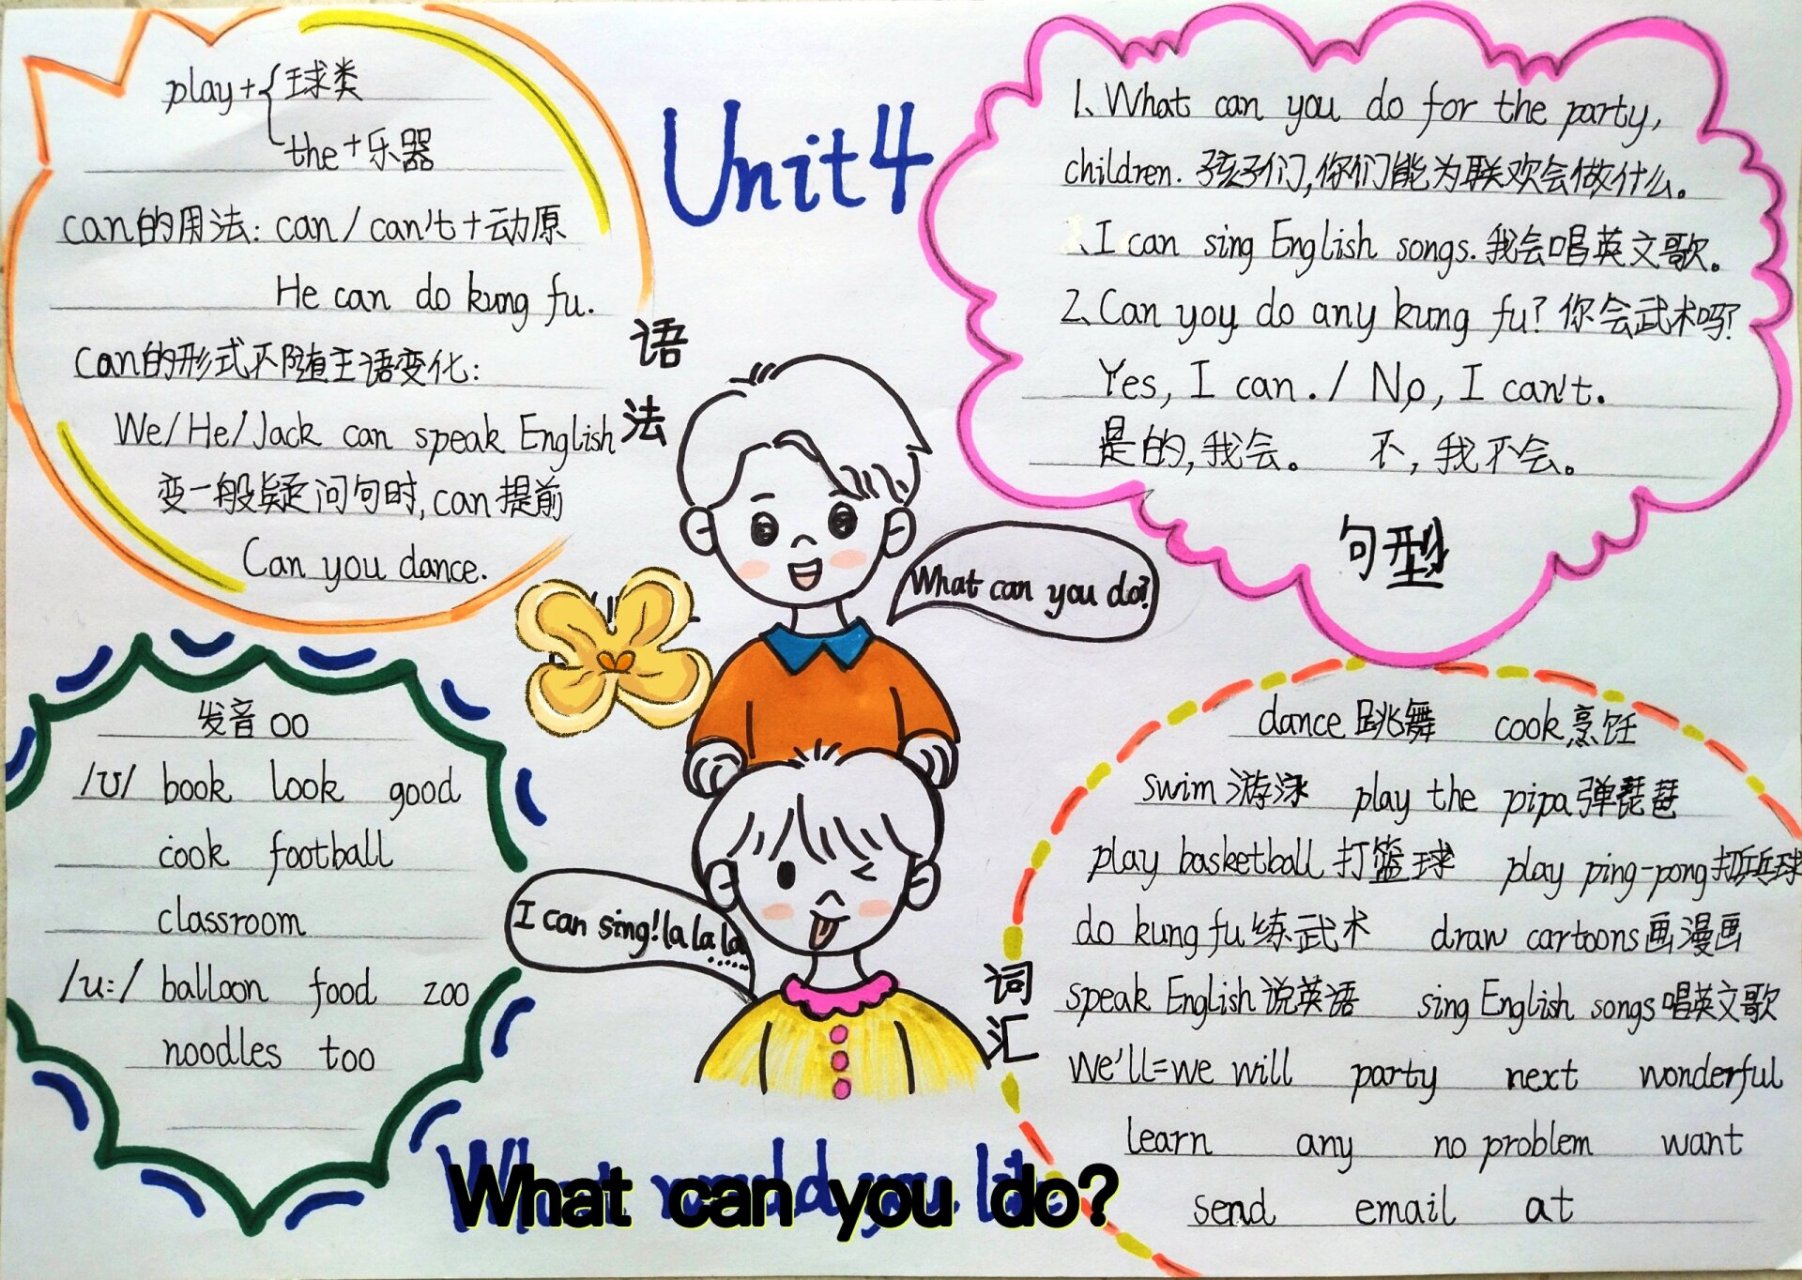 Unit4
play+{球类
the+乐器
can的用法: can/can't+动原
He can do kung fu.
can的形式不随主语变化:
We/He/Jack can speak English
变一般疑问句时,can提前
Can you dance.
语法
1、What can you do for the party,
children. 孩子们,你们能为联欢会做什么。
、I can sing English songs. 我会唱英文歌。
2、Can you do any kung fu? 你会武术吗?
Yes, I can. / No, I can't.
是的,我会。 不,我不会。
句型
What can you do?
I can sing! la la la......
发音 oo
/ʊ/ book look good
cook football
classroom
/u:/ balloon food zoo
noodles too
dance 跳舞 cook 烹饪
swim 游泳 play the pipa 弹琵琶
play basketball 打篮球 play ping-pong 打乒乓球
do kung fu 练武术 draw cartoons 画漫画
speak English 说英语 sing English songs 唱英文歌
we'll=we will party next wonderful
learn any no problem want
send email at
词汇
What can you do?